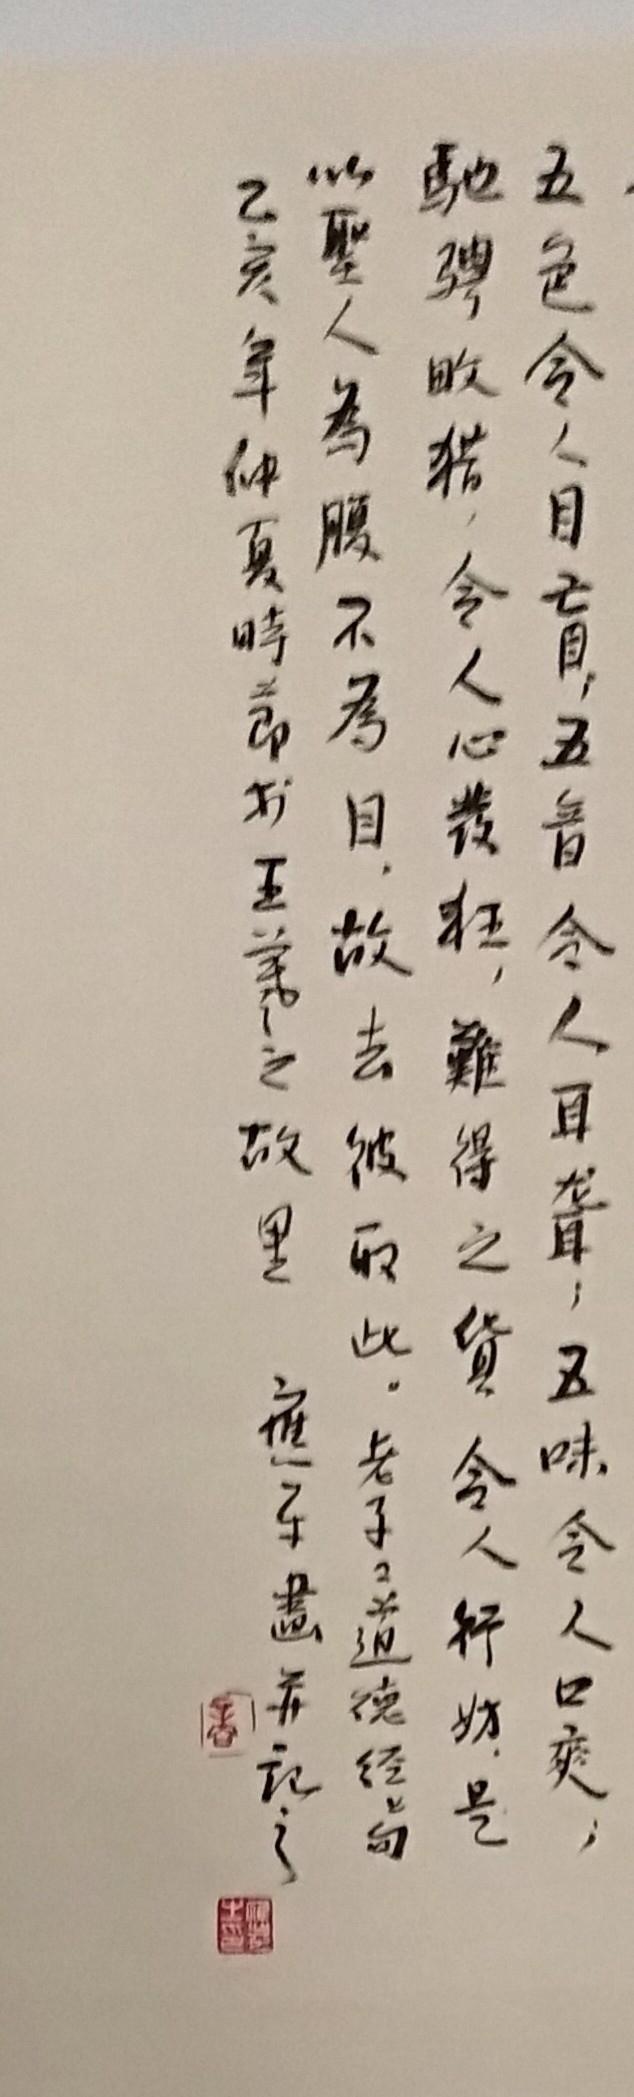 五色令人目盲，五音令人耳聾，五味令人口爽，
馳騁畋猎，令人心發狂，難得之貨令人行妨，是
以聖人為腹不為目，故去彼取此。老子《道德經》句
乙亥年仲夏時節於王羲之故里 應平畫并記之